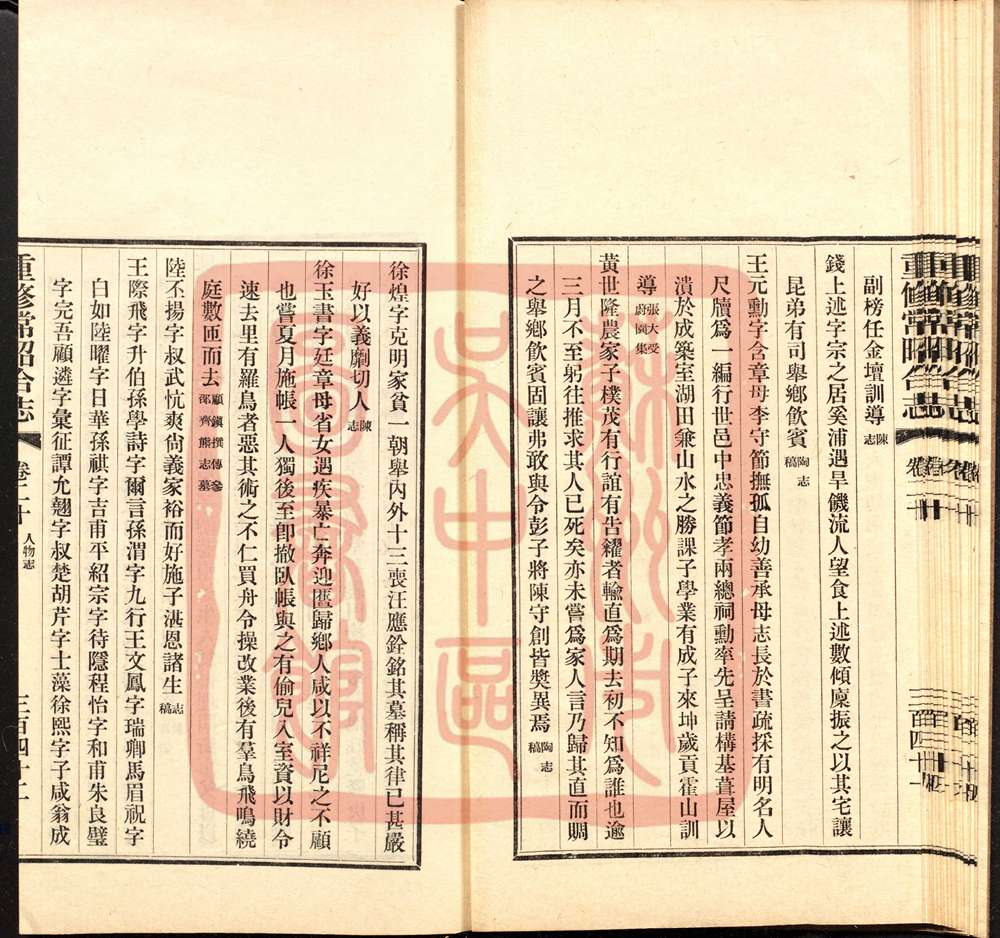 副榜任金壇訓導陳志
錢上述字宗之居奚浦遇旱饑流人望食上述數傾廩振之以其宅讓
昆弟有司舉鄉飲賓陶志稿
王元勳字含章母李守節撫孤自幼善承母志長於書疏採有明名人
尺牘爲一編行世邑中忠義節孝兩總祠勳率先呈請構基葺屋以
潰於成築室湖田兼山水之勝課子學業有成子來坤歲貢霍山訓
導張大受蔚園集
黃世隆農家子樸茂有行誼有告糴者輸直爲期去初不知爲誰也逾
三月不至躬往推求其人已死矣亦未嘗爲家人言乃歸其直而賙
之舉鄉飲賓固讓弗敢與令彭子將陳守創皆獎異焉陶志稿
徐煌字克明家貧一朝舉內外十三喪汪應銓銘其墓稱其律已甚嚴
好以義劘切人陳志
徐玉書字廷章母省女遇疾暴亡奔迎匶歸鄉人咸以不祥尼之不顧
也嘗夏月施帳一人獨後至卽撤臥帳與之有偷兒入室資以財令
速去里有羅鳥者惡其術之不仁買舟令操改業後有羣鳥飛鳴繞
庭數匝而去顧鎮撰傳參邵齊熊志墓
陸丕揚字叔武忼爽尙義家裕而好施子湛恩諸生志稿
王際飛字升伯孫學詩字爾言孫渭字九行王文鳳字瑞卿馬眉祝字
白如陸曜字日華孫祺字吉甫平紹宗字待隱程怡字和甫朱良璧
字完吾顧遴字彙征譚允翹字叔楚胡芹字士藻徐熙字子咸翁成
重修常昭合志
卷二十
人物志
三百四十二